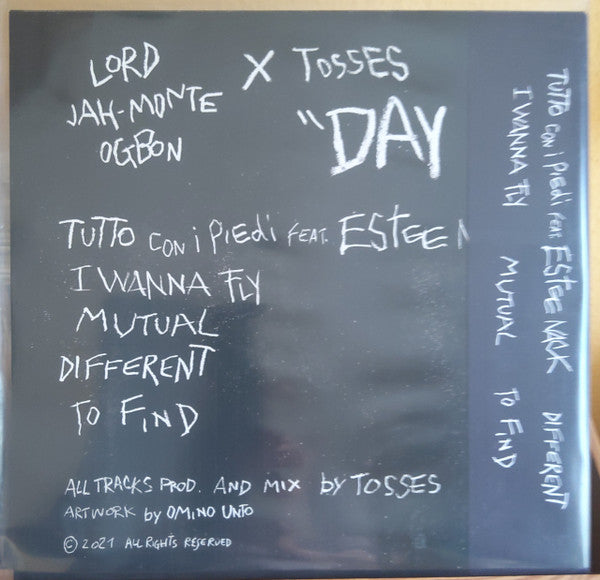 LORD
JAH-MONTE
OGBON
X TOSSES
"DAY
TUTTO CON i PIEDI FEAT. ESTEE N
I WANNA FLY
MUTUAL
DIFFERENT
TO FIND
ALL TRACKS PROD. AND MIX by TOSSES
ARTWORK by OMINO UNTO
© 2021 ALL RIGHTS RESERVED
TUTTO CON i PIEDI FEAT. ESTEE NACK DIFFERENT
I WANNA FLY MUTUAL TO FIND